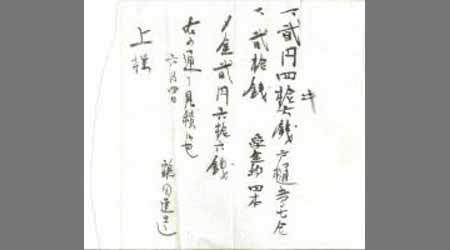 一、貳円四拾六銭 戸樋五十七仝
キ
一、貳拾銭 四本
〆金貳円六拾六銭
右の通り見積候也
六月四日
上様